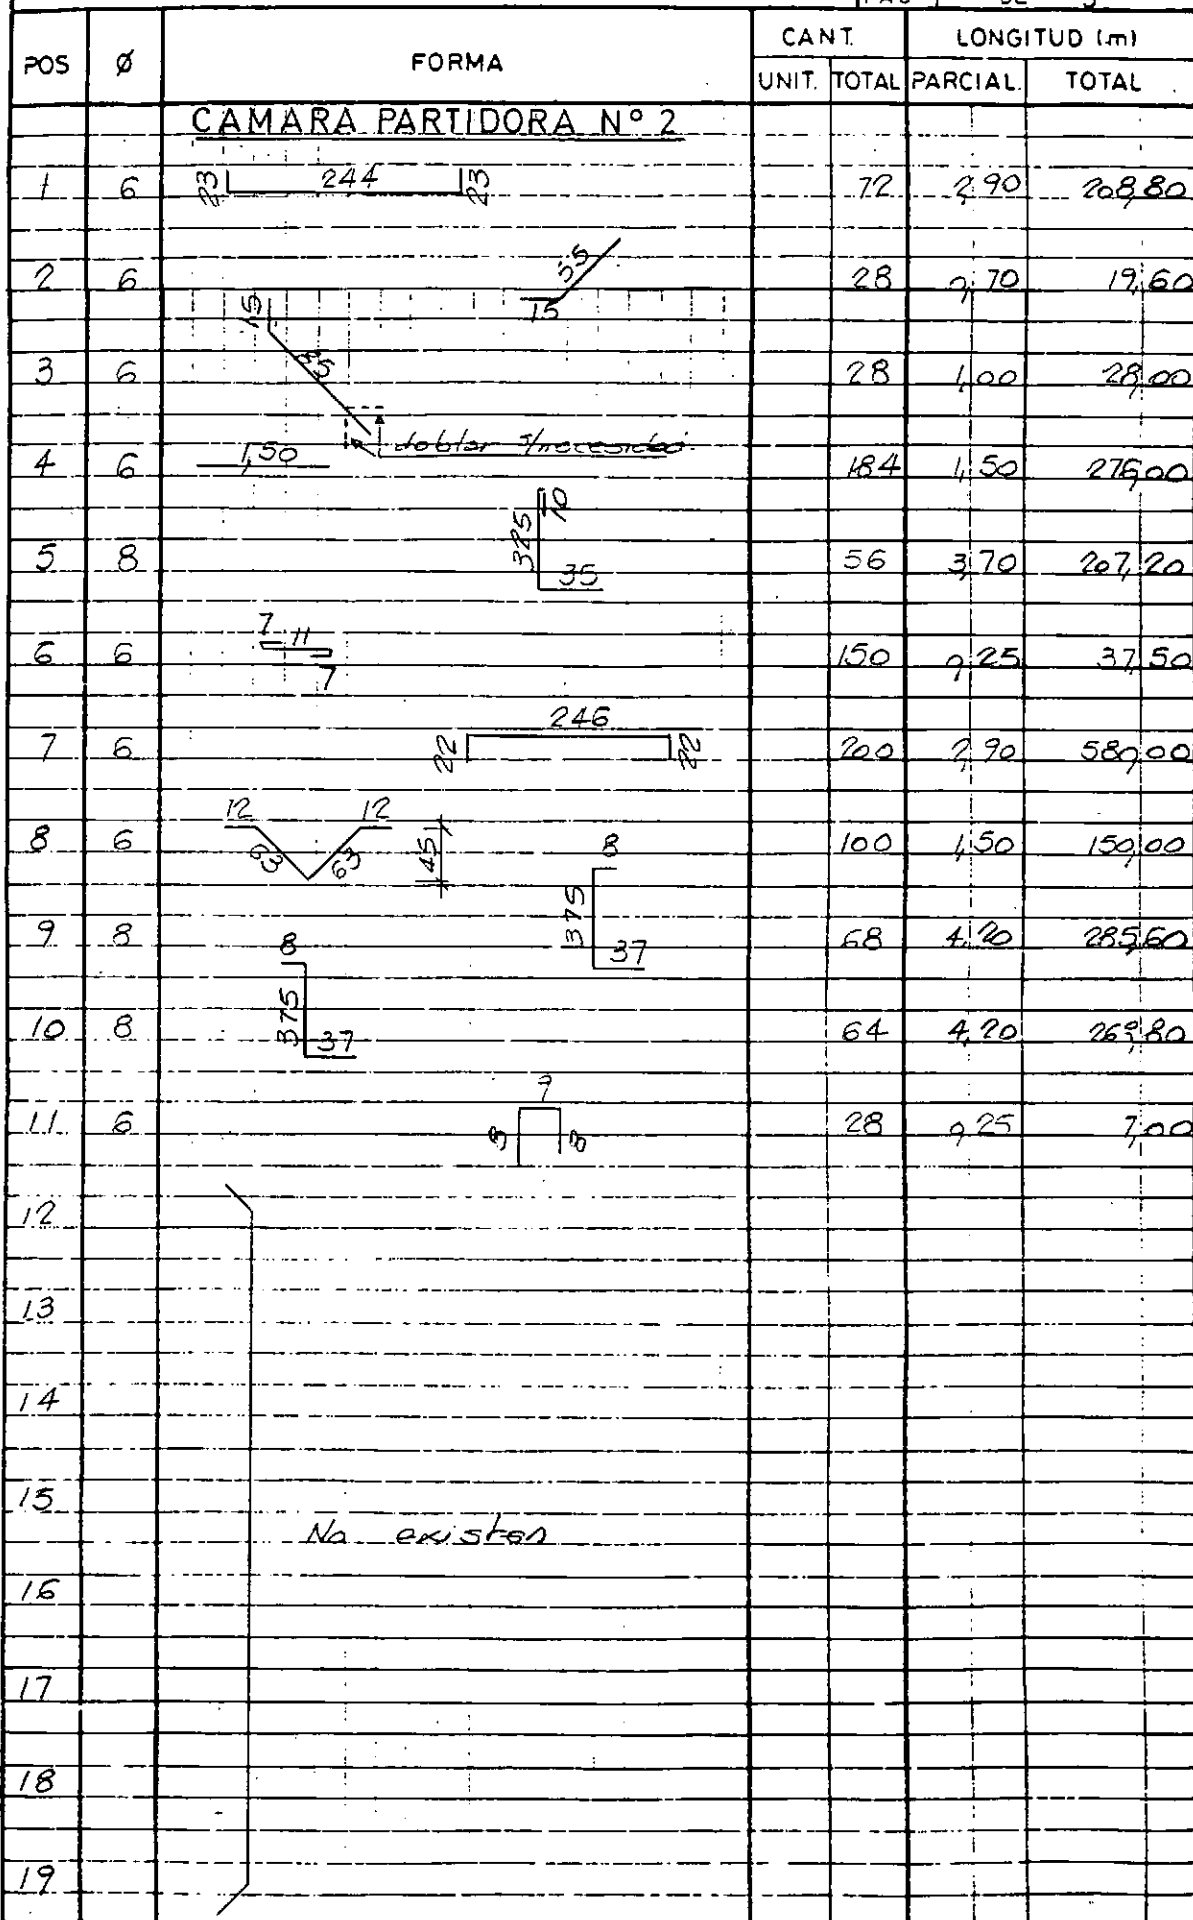 POS Ø FORMA CANT. LONGITUD (m)
UNIT. TOTAL PARCIAL. TOTAL
CAMARA PARTIDORA N° 2
1 6 23 244 23 72 2,90 208,80
2 6 15 55 28 0,70 19,60
3 6 15 85 28 1,00 28,00
doblar s/necesidad.
4 6 1,50 184 1,50 276,00
5 8 325 10 35 56 3,70 207,20
6 6 7 11 7 150 0,25 37,50
7 6 22 246 22 200 2,90 580,00
8 6 12 63 63 12 45 100 1,50 150,00
9 8 8 375 37 68 4,20 285,60
10 8 8 375 37 64 4,20 268,80
11 6 8 9 8 28 0,25 7,00
12
13
14
15
No existen
16
17
18
19